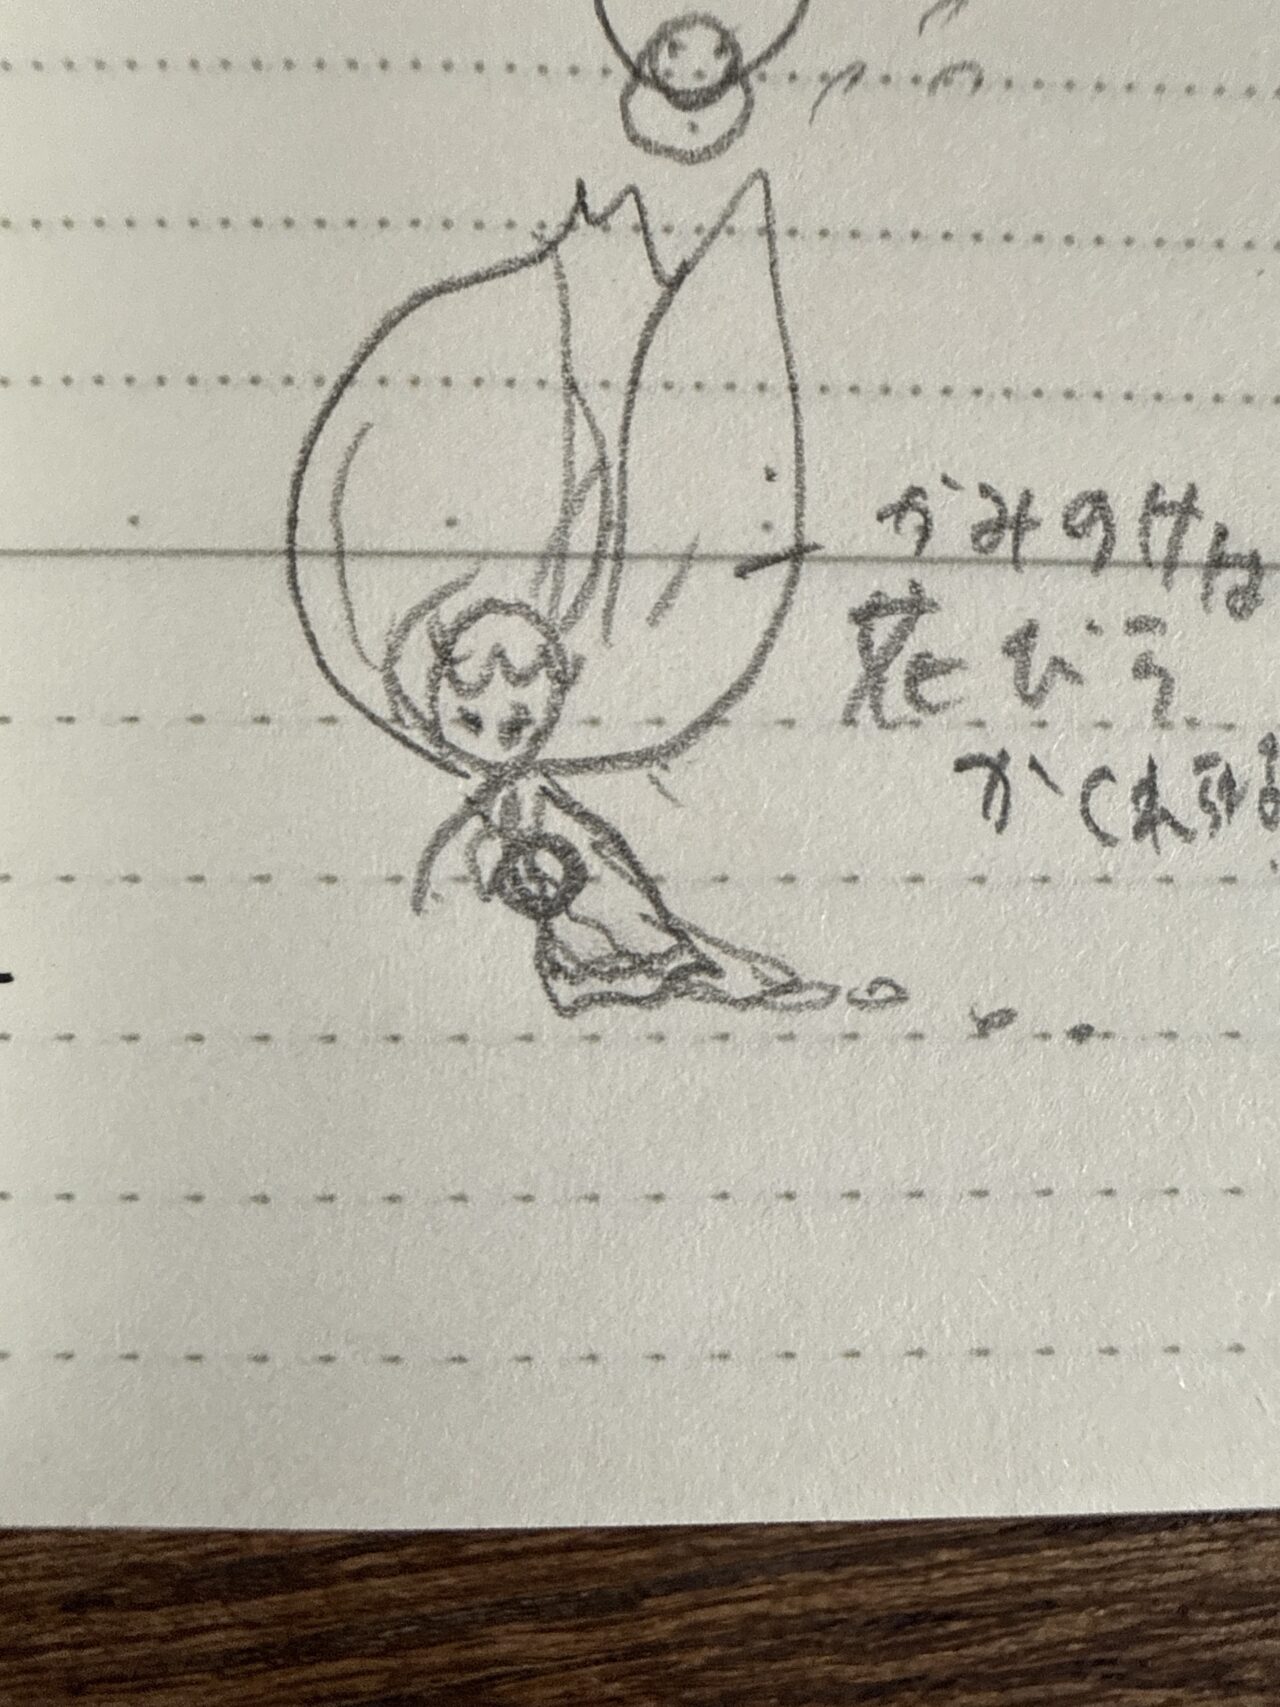 かみのけは
花びら
かくれ